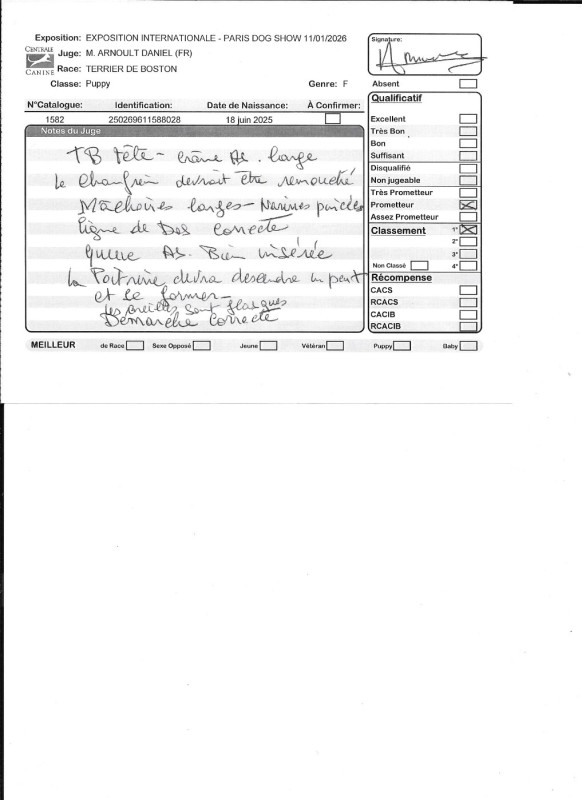 Exposition: EXPOSITION INTERNATIONALE - PARIS DOG SHOW 11/01/2026
CENTRALE CANINE
Juge: M. ARNOULT DANIEL (FR)
Race: TERRIER DE BOSTON
Classe: Puppy Genre: F
N°Catalogue: Identification: Date de Naissance: À Confirmer:
1582 250269611588028 18 juin 2025
Notes du Juge
TB tête - crâne As. large
Le chanfrein devrait être
Mâchoires larges - Narines pincées
ligne de Dos correcte
queue As. Bien insérée
la Poitrine devra descendre un peu
et se former -
les oreilles sont flasques
Démarche correcte
Signature:
Absent
Qualificatif
Excellent
Très Bon
Bon
Suffisant
Disqualifié
Non jugeable
Très Prometteur
Prometteur
Assez Prometteur
Classement 1°
2°
3°
Non Classé 4°
Récompense
CACS
RCACS
CACIB
RCACIB
MEILLEUR de Race Sexe Opposé Jeune Vétéran Puppy Baby